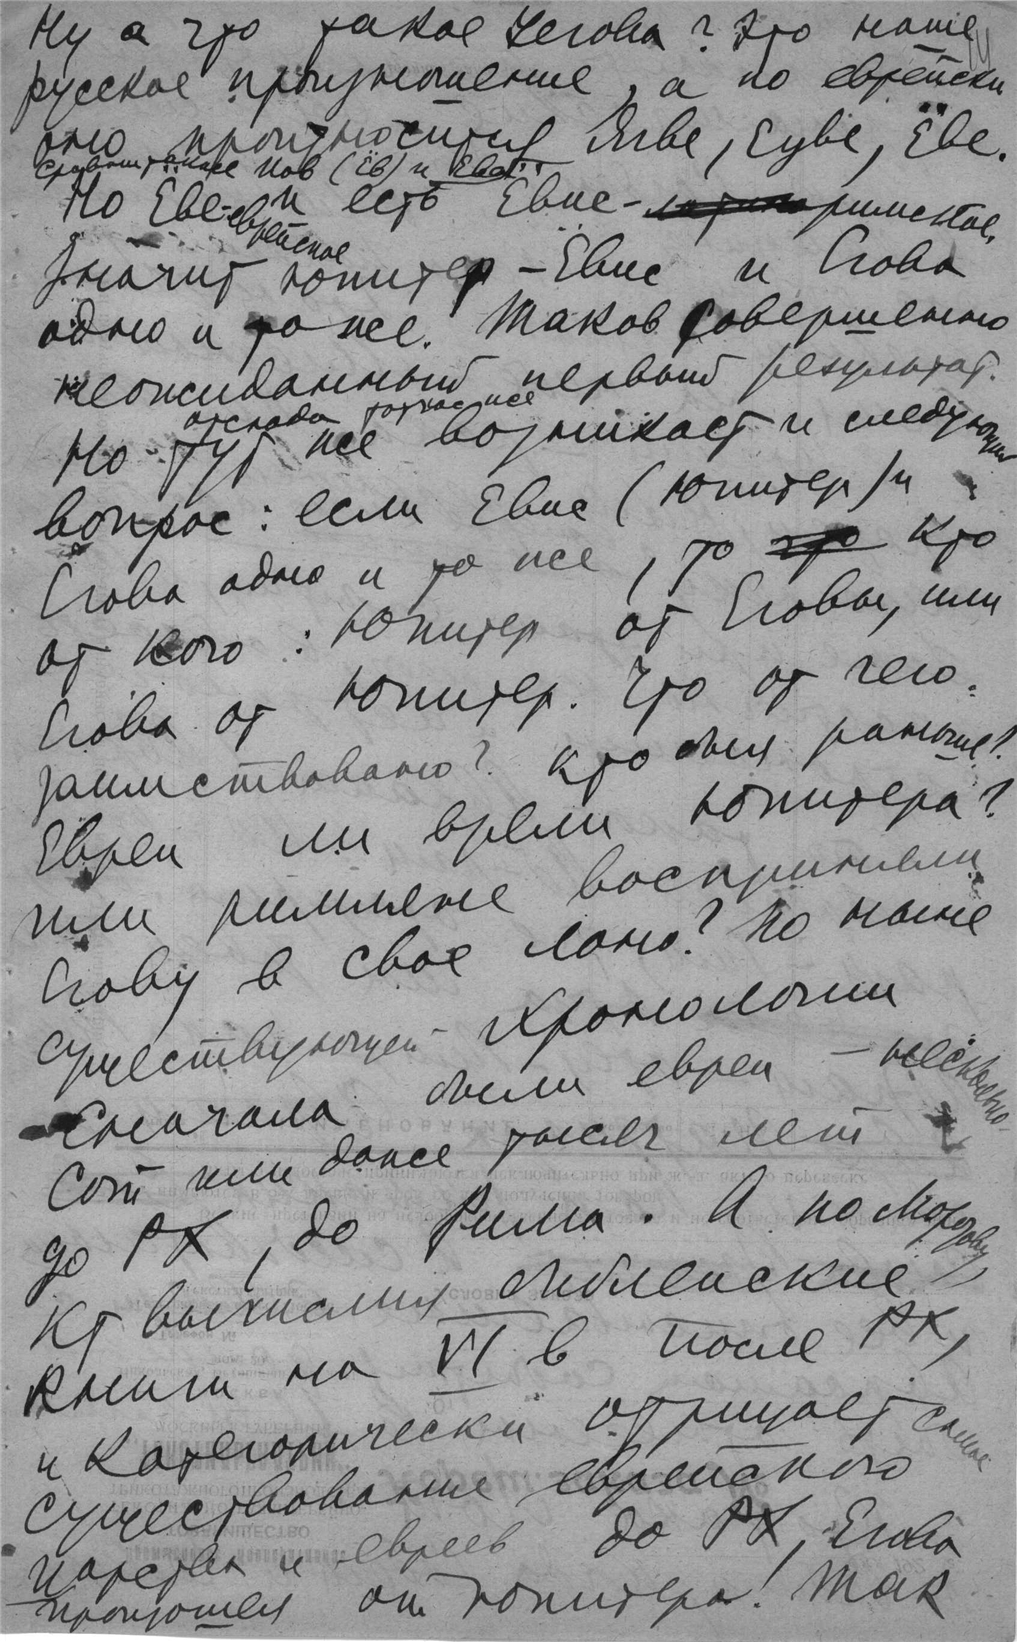 Ну а что такое Иегова? Это наше
русское произношение, а по еврейски
оно произносится Ягве, Еуве, Ёве.
Сравни также Иов (Ёв) и Ева
Но Ёве-еврейское и есть Ёвис - римское,
значит Юпитер - Ёвис и Егова
одно и то же. Таков совершенно
неожиданный первый результат.
отсюда тотчас же
Но тут же возникает и следующий
вопрос: если Ёвис (Юпитер) и
Егова одно и то же, то кто
от кого: Юпитер от Еговы, или
Егова от Юпитер. Что от чего
заимствовано? Кто был раньше?
Евреи ли взяли Юпитера?
или римляне восприняли
Егову в свое лоно? По ныне
существующей хронологии
сначала были евреи - несколько
сот или даже тысяч лет
до РХ, до Рима. А по Морозову,
кт вычислил библейские
книги на VI в после РХ,
и категорически отрицает самое
существование еврейского
царства и евреев до РХ, Егова
произошел от Юпитера! Так